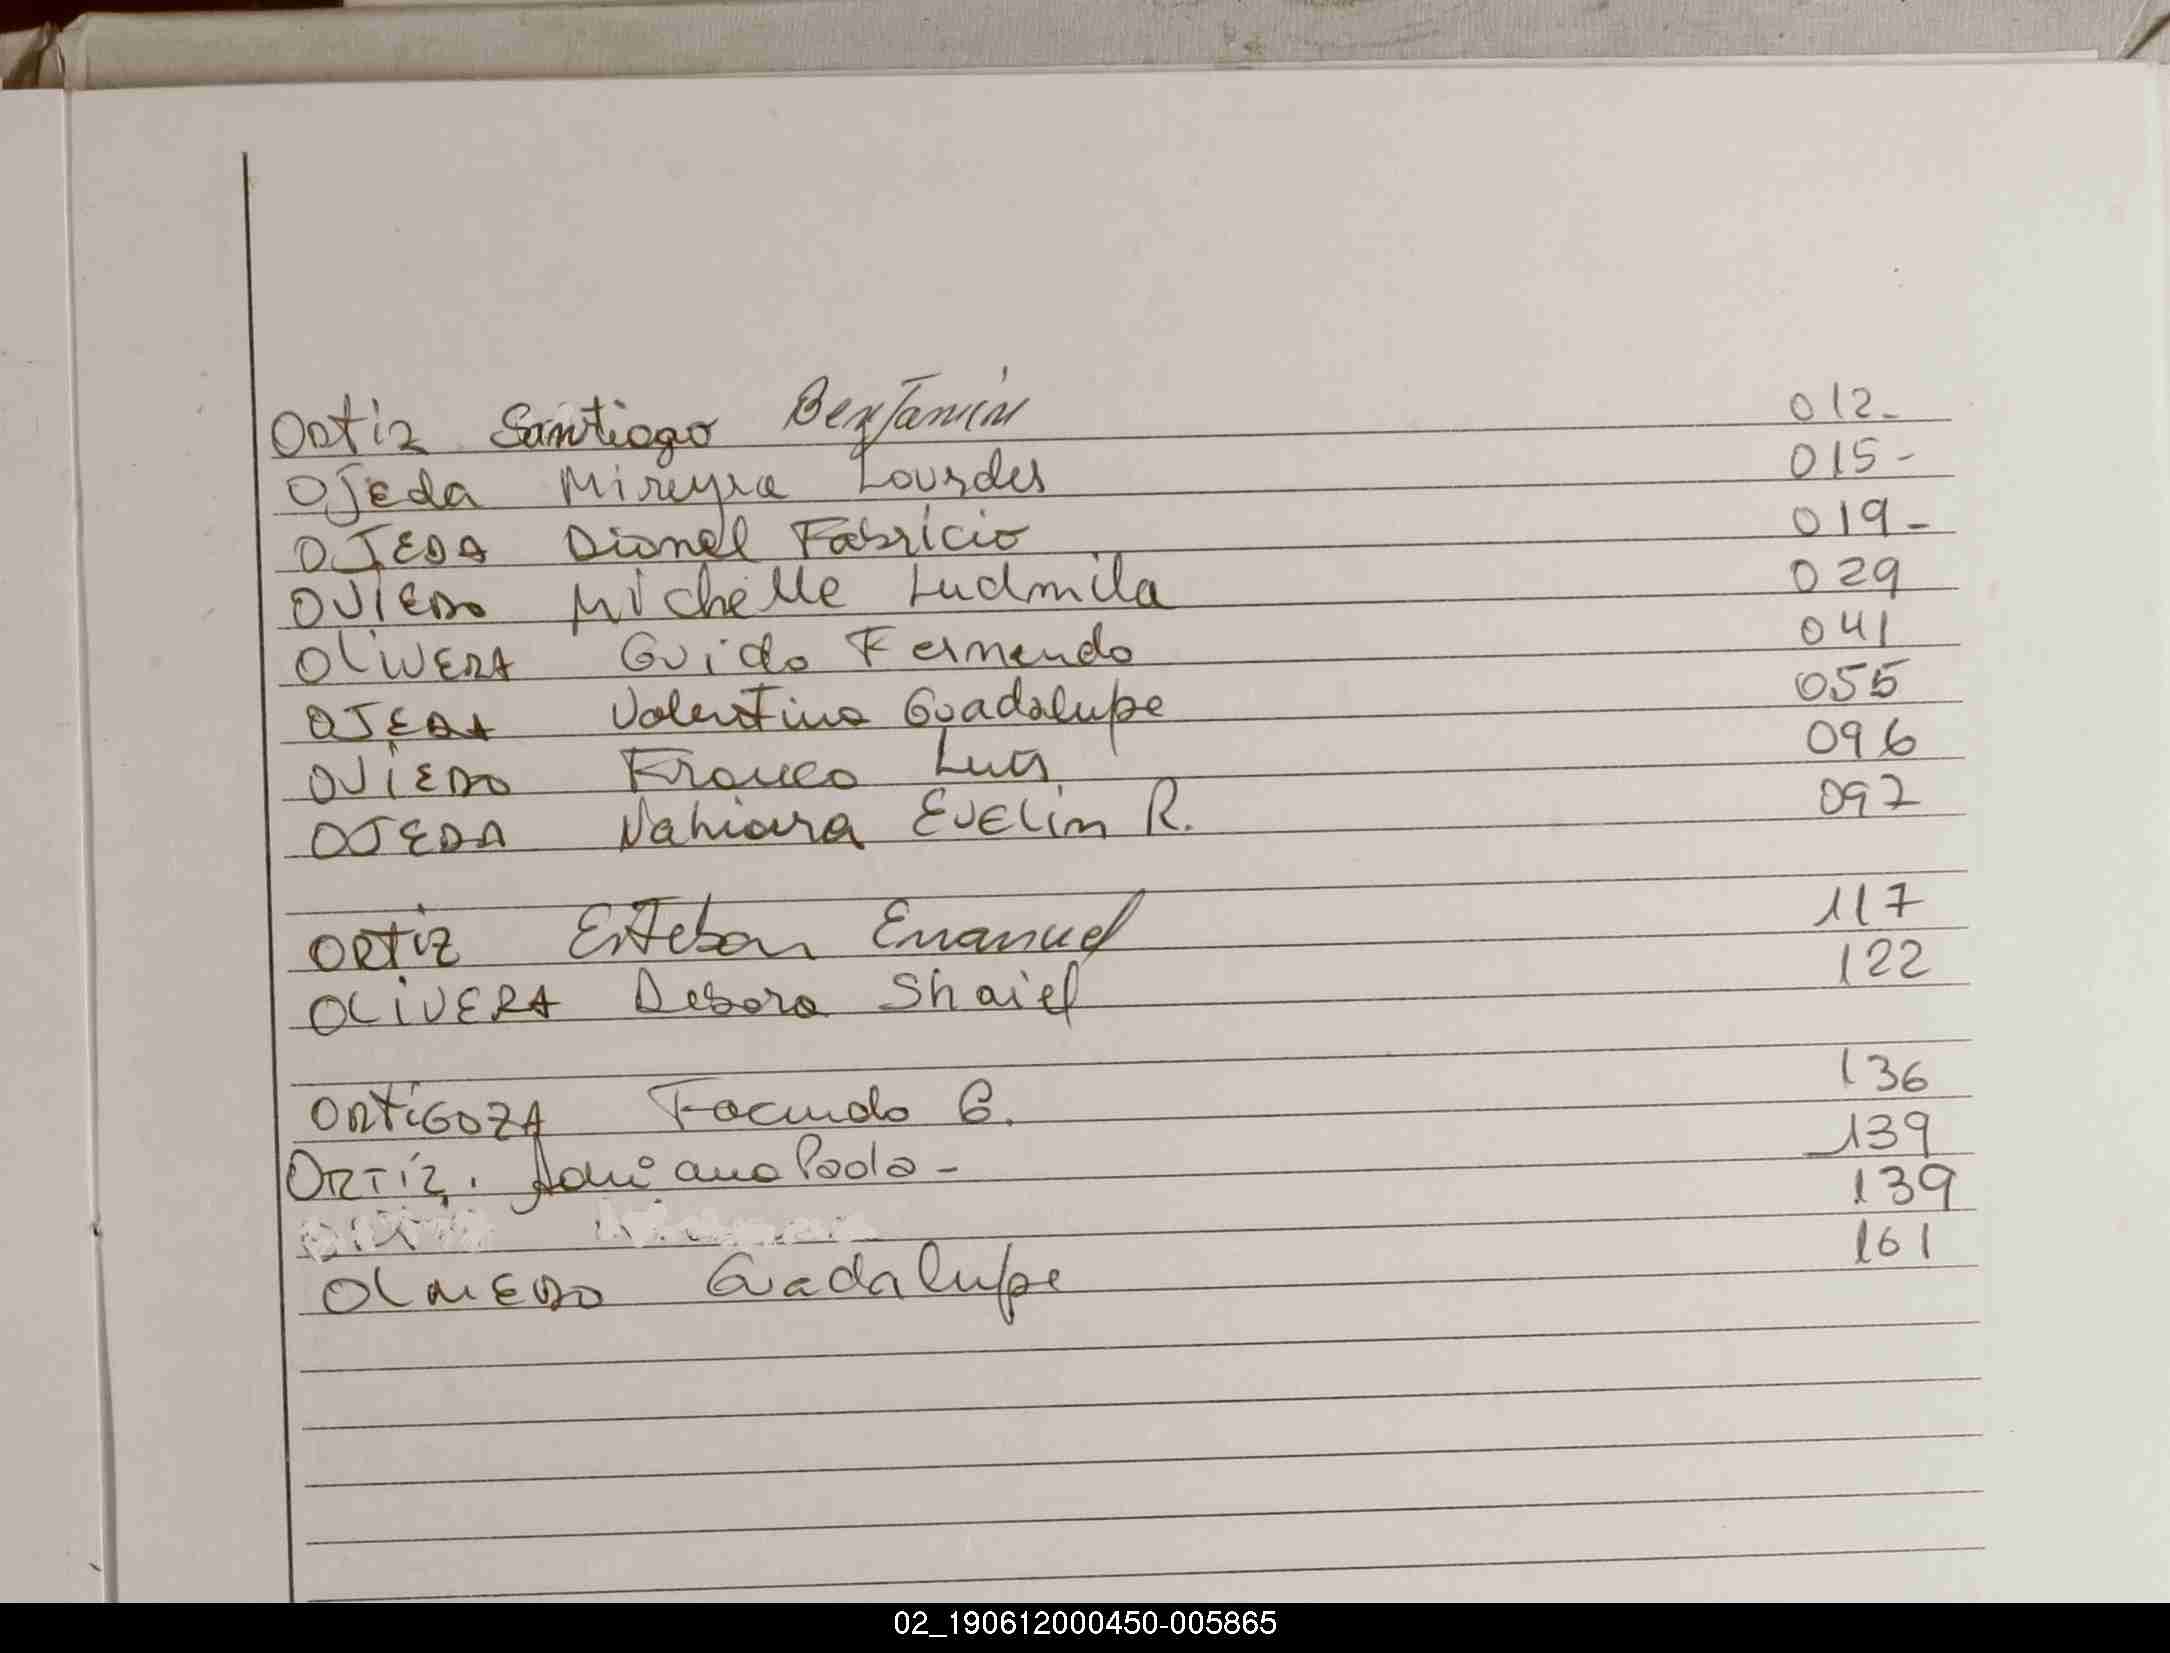 Ortiz Santiago Benjamin 012-
OJEda Mireyra Lourdes 015-
OJEDA Dionel Fabricio 019-
OVIEDO Michelle Ludmila 029
OLIVERA Guido Fernando 041
OJEDA Valentina Guadalupe 055
OVIEDO Franco Luis 096
OJEDA Nahiara Evelin R. 097
ORTIZ Esteban Emanuel 117
OLIVERA Debora Shaiel 122
ORTIGOZA Facundo G. 136
ORTIZ. Adriana Paola - 139
139
OLMEDO Guadalupe 161
02_190612000450-005865